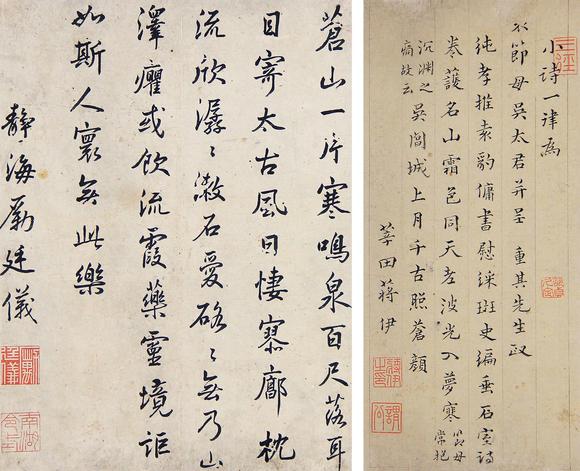 小詩一律為
袁節母吳太君并呈 重其先生政
純孝推袁豹傭書慰綵斑史編垂石室詩
卷護名山霜色同天老波光入夢寒 節母常抱
沉淵之痛故云 吳閶城上月千古照蒼顏
莘田蔣伊
蔣伊之印
蒼山一片寒鳴泉百尺落耳
目寄太古風日悽寥廓枕
流欣潺〻漱石愛硌〻無乃山
澤癯或飲流霞藥靈境詎
如斯人寰無此樂
靜海勵廷儀